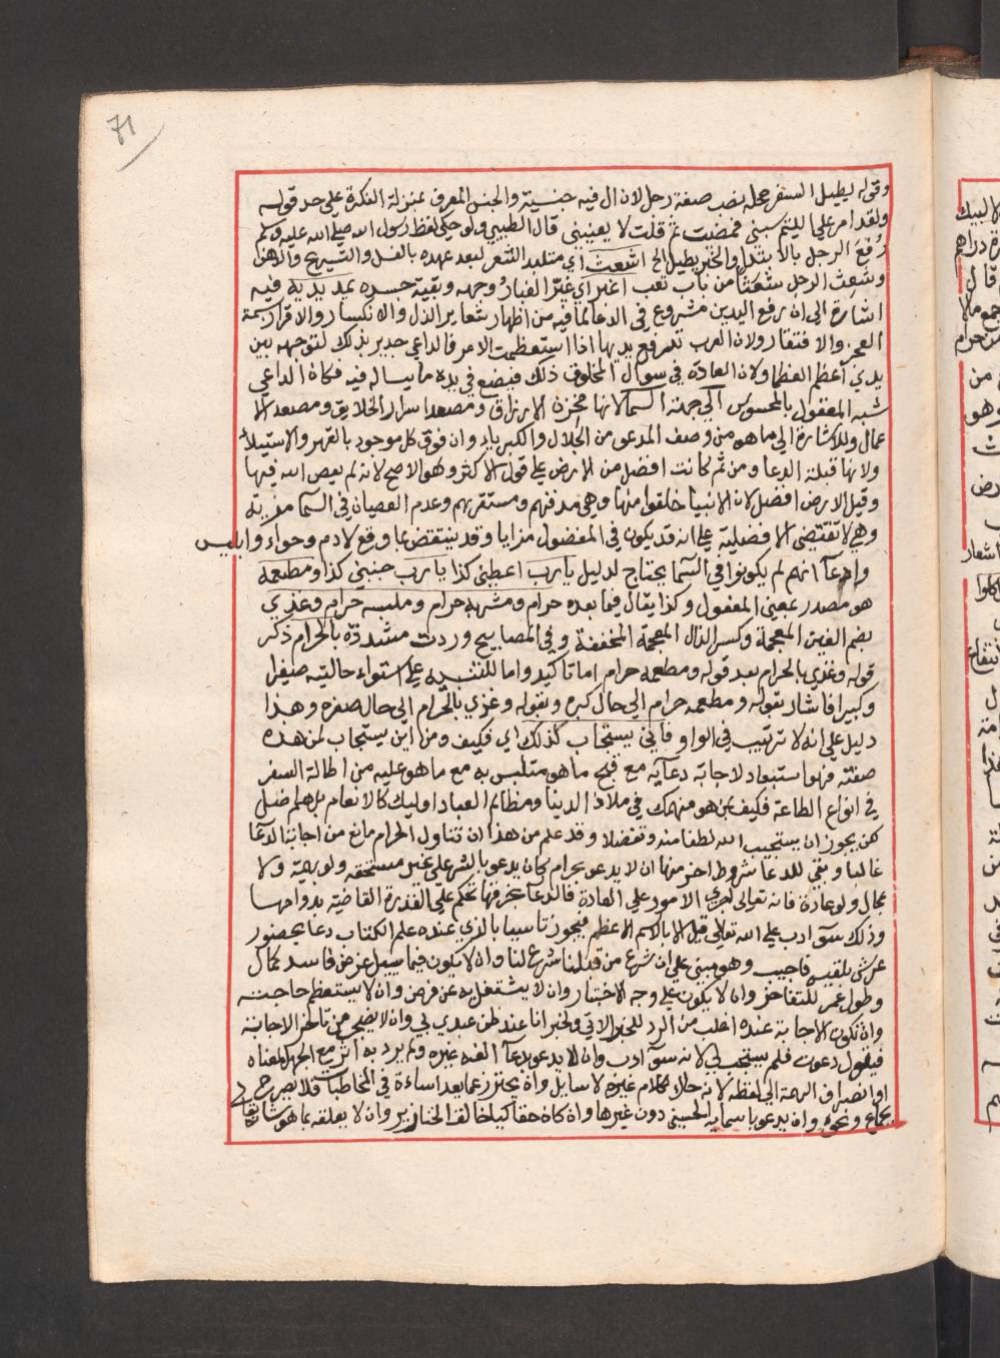 71
وقوله يطيل السفر محله نصب صفة رجل لان ال فيه جنسية والجنس المعرف بمنزلة النكرة على حد قوله
ولقد امر على اللئيم يسبني فمضيت ثم قلت لا يعنيني قال الطيبي ولو حكى لفظ رسول الله صلى الله عليه وسلم
رُفع الرجل بالابتدا والخبر يطيل الخ اشعث اي متلبد الشعر لبعد عهده بالغسل والتسريح والدهن
وشعِث الرجل شعَثاً من باب تعب اغبر اي غيّر الغبارُ وجهه وبقية جسده يمد يديه فيه
اشارة الى ان رفع اليدين مشروع في الدعا لما فيه من اظهار شعاير الذل والانكسار والاقرار بسمة
العجز والافتقار ولان العرب ترفع يديها اذا استعظمت الامر فالداعي جدير بذلك لتوجهه بين
يدي أعظم العظما ولان العادة في سوال المخلوق ذلك فيضع في يده ما يساله فيه فكان الداعي
شبه المعقول بالمحسوس الي جهة السما لانها مخزن الارزاق ومصعد اسرار الخلايق ومصعد الا
عمال وللاشارة الي ما هو من وصف المدعو من الجلال والكبرياء وان فوق كل موجود بالقهر والاستيلاء
ولانها قبلة الدعا ومن ثم كانت افضل من الارض على قول الاكثر وهو الاصح لانه لم يعص الله فيها
وقيل الارض افضل لان الانبيا خلقوا منها وهي مدفنهم ومستقرهم وعدم العصيان في السما مزية
وهي لا تقتضى الافضلية على انه قد يكون في المفضول مزايا وقد ينتقض بما وقع لادم وحواء وابليس
وادعآ انهم لم يكونوا في السما يحتاج لدليل يا رب اعطيني كذا يا رب جنبني كذا ومطعمه
هو مصدر بمعني المفعول وكذا يقال فيما بعده حرام ومشربه حرام وملبسه حرام وغذي
بضم الغين المعجمة وكسر الذال المعجمة المخففة وفي المصابيح وردت مشددة بالحرام ذكر
قوله وغذي بالحرام بعد قوله ومطعمه حرام اما تاكيد واما للتنبيه على استواء حاليته صغيرا
وكبيرا فاشار بقوله ومطعمه حرام الي حال كبره وبقوله وغذي بالحرام الي حال صغره وهذا
دليل علي انه لا ترتيب في الواو فأنى يستجاب كذلك اي فكيف ومن اين يستجاب لمن هذه
صفته فهو استبعاد لاجابة دعآيه مع قبح ما هو متلبس به مع ما هو عليه من اطالة السفر
في انواع الطاعة فكيف بمن هو منهمك في ملاذ الدينا ومظالم العباد اوليك كالانعام بل هم اضل
لكن يجوز ان يستجيب الله لطفا منه وتفضلا وقد علم من هذا ان تناول الحرام مانع من اجابة الدعا
غالبا وبقي للدعا شروط اخر منها ان لا يدعو بحرام كان يدعو بالشر على غير مستحقه ولو بهيمة ولا
بمحال ولو عادة فانه تعالى اجرى الامور علي العادة فالدعا بخرقها تحكم على القدرة القاضية بدوامها
وذلك سوٓ ادب علي الله تعالى قيل الا بالاسم الاعظم فيجوز تاسيا بالذي عنده علم الكتاب دعا بحضور
عرش بلقيس فاجيب وهو مبني على ان شرع من قبلنا شرع لنا وان لا يكون فيما يسيل غرض فاسد كمال
وطول عمر للتفاخر وان لا يكون على وجه الاختبار وان لا يشتغل به عن فرض وان لا يستعظم حاجته
وان تكون الاجابة عنده اغلب من الرد للخبر الاتي ولخبر انا عند ظن عبدي بي وان لا يضجر من تاخر الاجابة
فيقول دعوت فلم يستجب لي لانه سوٓ ادب وان لا يدعو بدعآ الفه غيره ولم يرد به اثر مع الجهل بمعناه
او انصراف الهمة الي لفظه لانه حاك لكلام غيره لا سايل وان يحترز عما يعد اساءة في المخاطبات فلا يصرح
بجماع ونحوه وان يدعو باسمايه الحسنى دون غيرها وان كان حقا كيا خالق الخنازير وان لا يعلقه بما هو